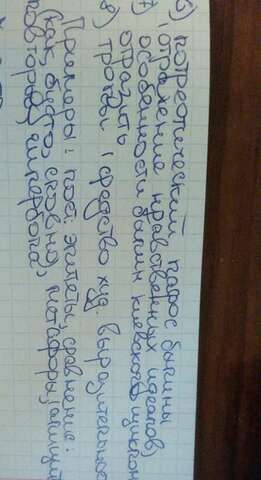 6) потреотический пафос былины
(отражение нравственных идеалов)
7) особенности былин киевского цикла
отразить
8) тропы, средство худ. выразительнос
Примеры: пост. эпитеты, сравнение:
(как, будто, словно), метафоры,
повторы, гипербола)